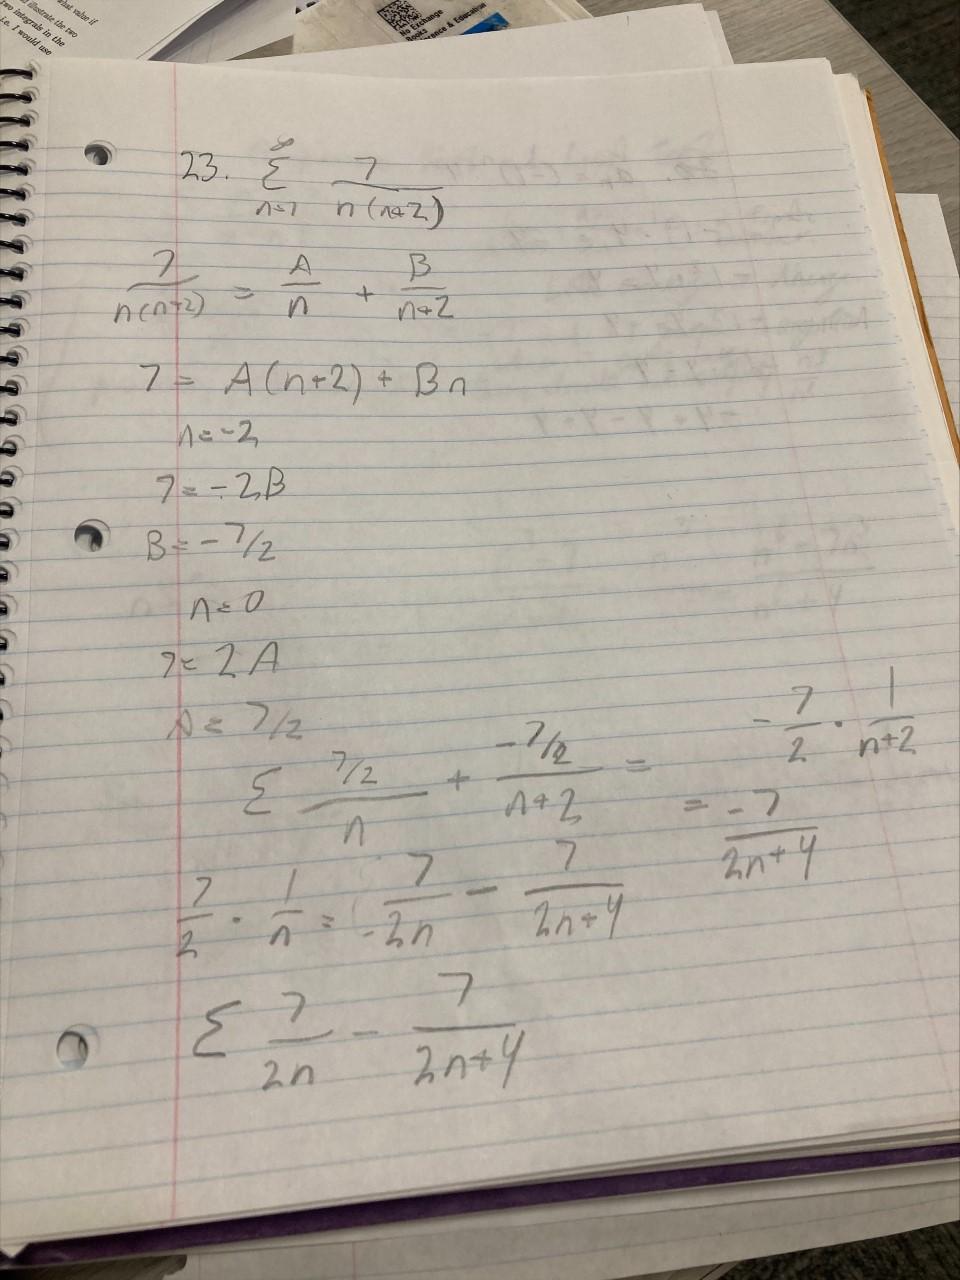 what value if
d illustrate the two
two integrals in the
i.e. I would use
No Exchange
Books
erance & Education
23. Σ 7
∞
n=1 n(n+2)
7 / n(n+2) = A/n + B/(n+2)
7 = A(n+2) + Bn
n=-2
7 = -2B
B = -7/2
n = 0
7 = 2A
A = 7/2
Σ (7/2)/n + (-7/2)/(n+2) =
-7/2 · 1/(n+2)
= -7/(2n+4)
7/2 · 1/n = 7/2n - 7/(2n+4)
Σ 7/2n - 7/(2n+4)